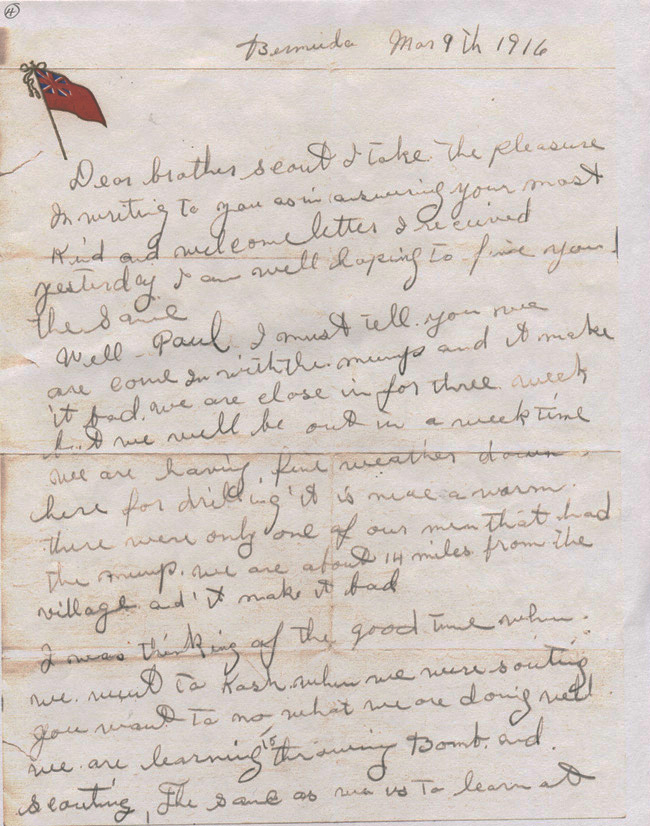 4
Bermuda Mar 9th 1916
Dear brother scout I take the pleasure
In writing to you as in answering your most
Kind and welcome letter I received
yesterday I am well hoping to fine you
the same
Well Paul I must tell you we
are come In with the mumps and it make
it bad. we are close in for three week
but we will be out in a week time
we are having fine weather down
here for drilling it is nice a warm.
there were only one of our men that had
the mump. we are about 14 miles from the
village ad it make it bad
I was thinking of the good time when
we went to Kash when we were scouting
you want to no what we are doing well
we are learning to throwing Bomb. and.
scouting, The same as we us to learn at